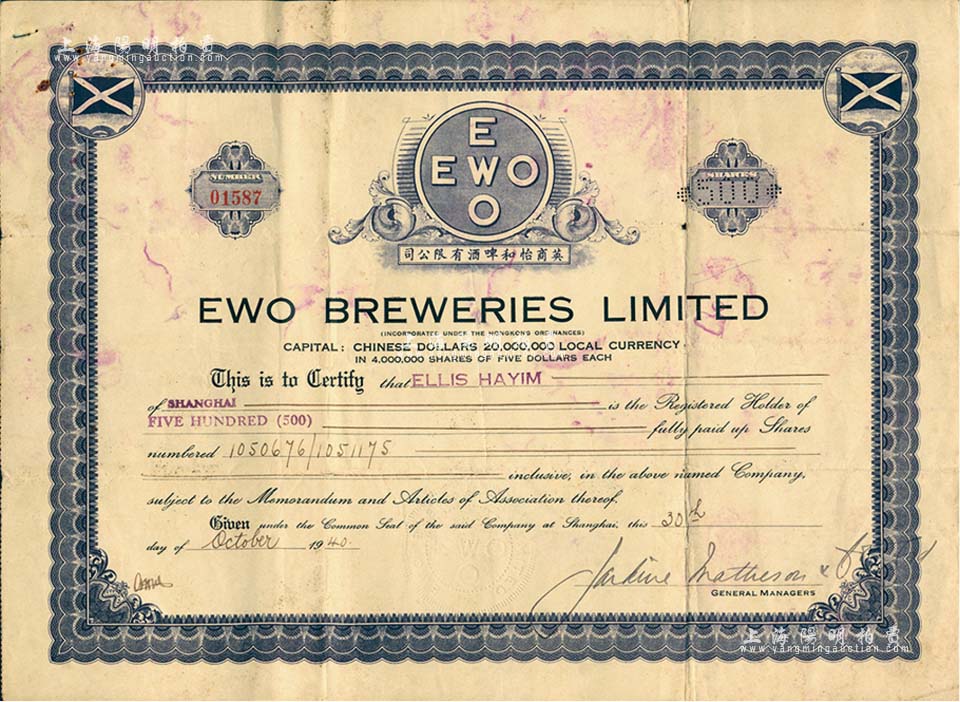 上海陽明拍賣
www.yangmingauction.com
E
EWO
O
NUMBER
01587
SHARES
500
英商怡和啤酒有限公司
EWO BREWERIES LIMITED
(INCORPORATED UNDER THE HONGKONG ORDINANCES)
CAPITAL: CHINESE DOLLARS 20,000,000 LOCAL CURRENCY
IN 4,000,000 SHARES OF FIVE DOLLARS EACH
This is to Certify that ELLIS HAYIM
of SHANGHAI is the Registered Holder of
FIVE HUNDRED (500) fully paid up Shares
numbered 1050676/1051175
inclusive, in the above named Company,
subject to the Memorandum and Articles of Association thereof.
Given under the Common Seal of the said Company at Shanghai, this 30th
day of October 1940.
Jardine Matheson &
GENERAL MANAGERS
上海陽明拍賣
www.yangmingauction.com